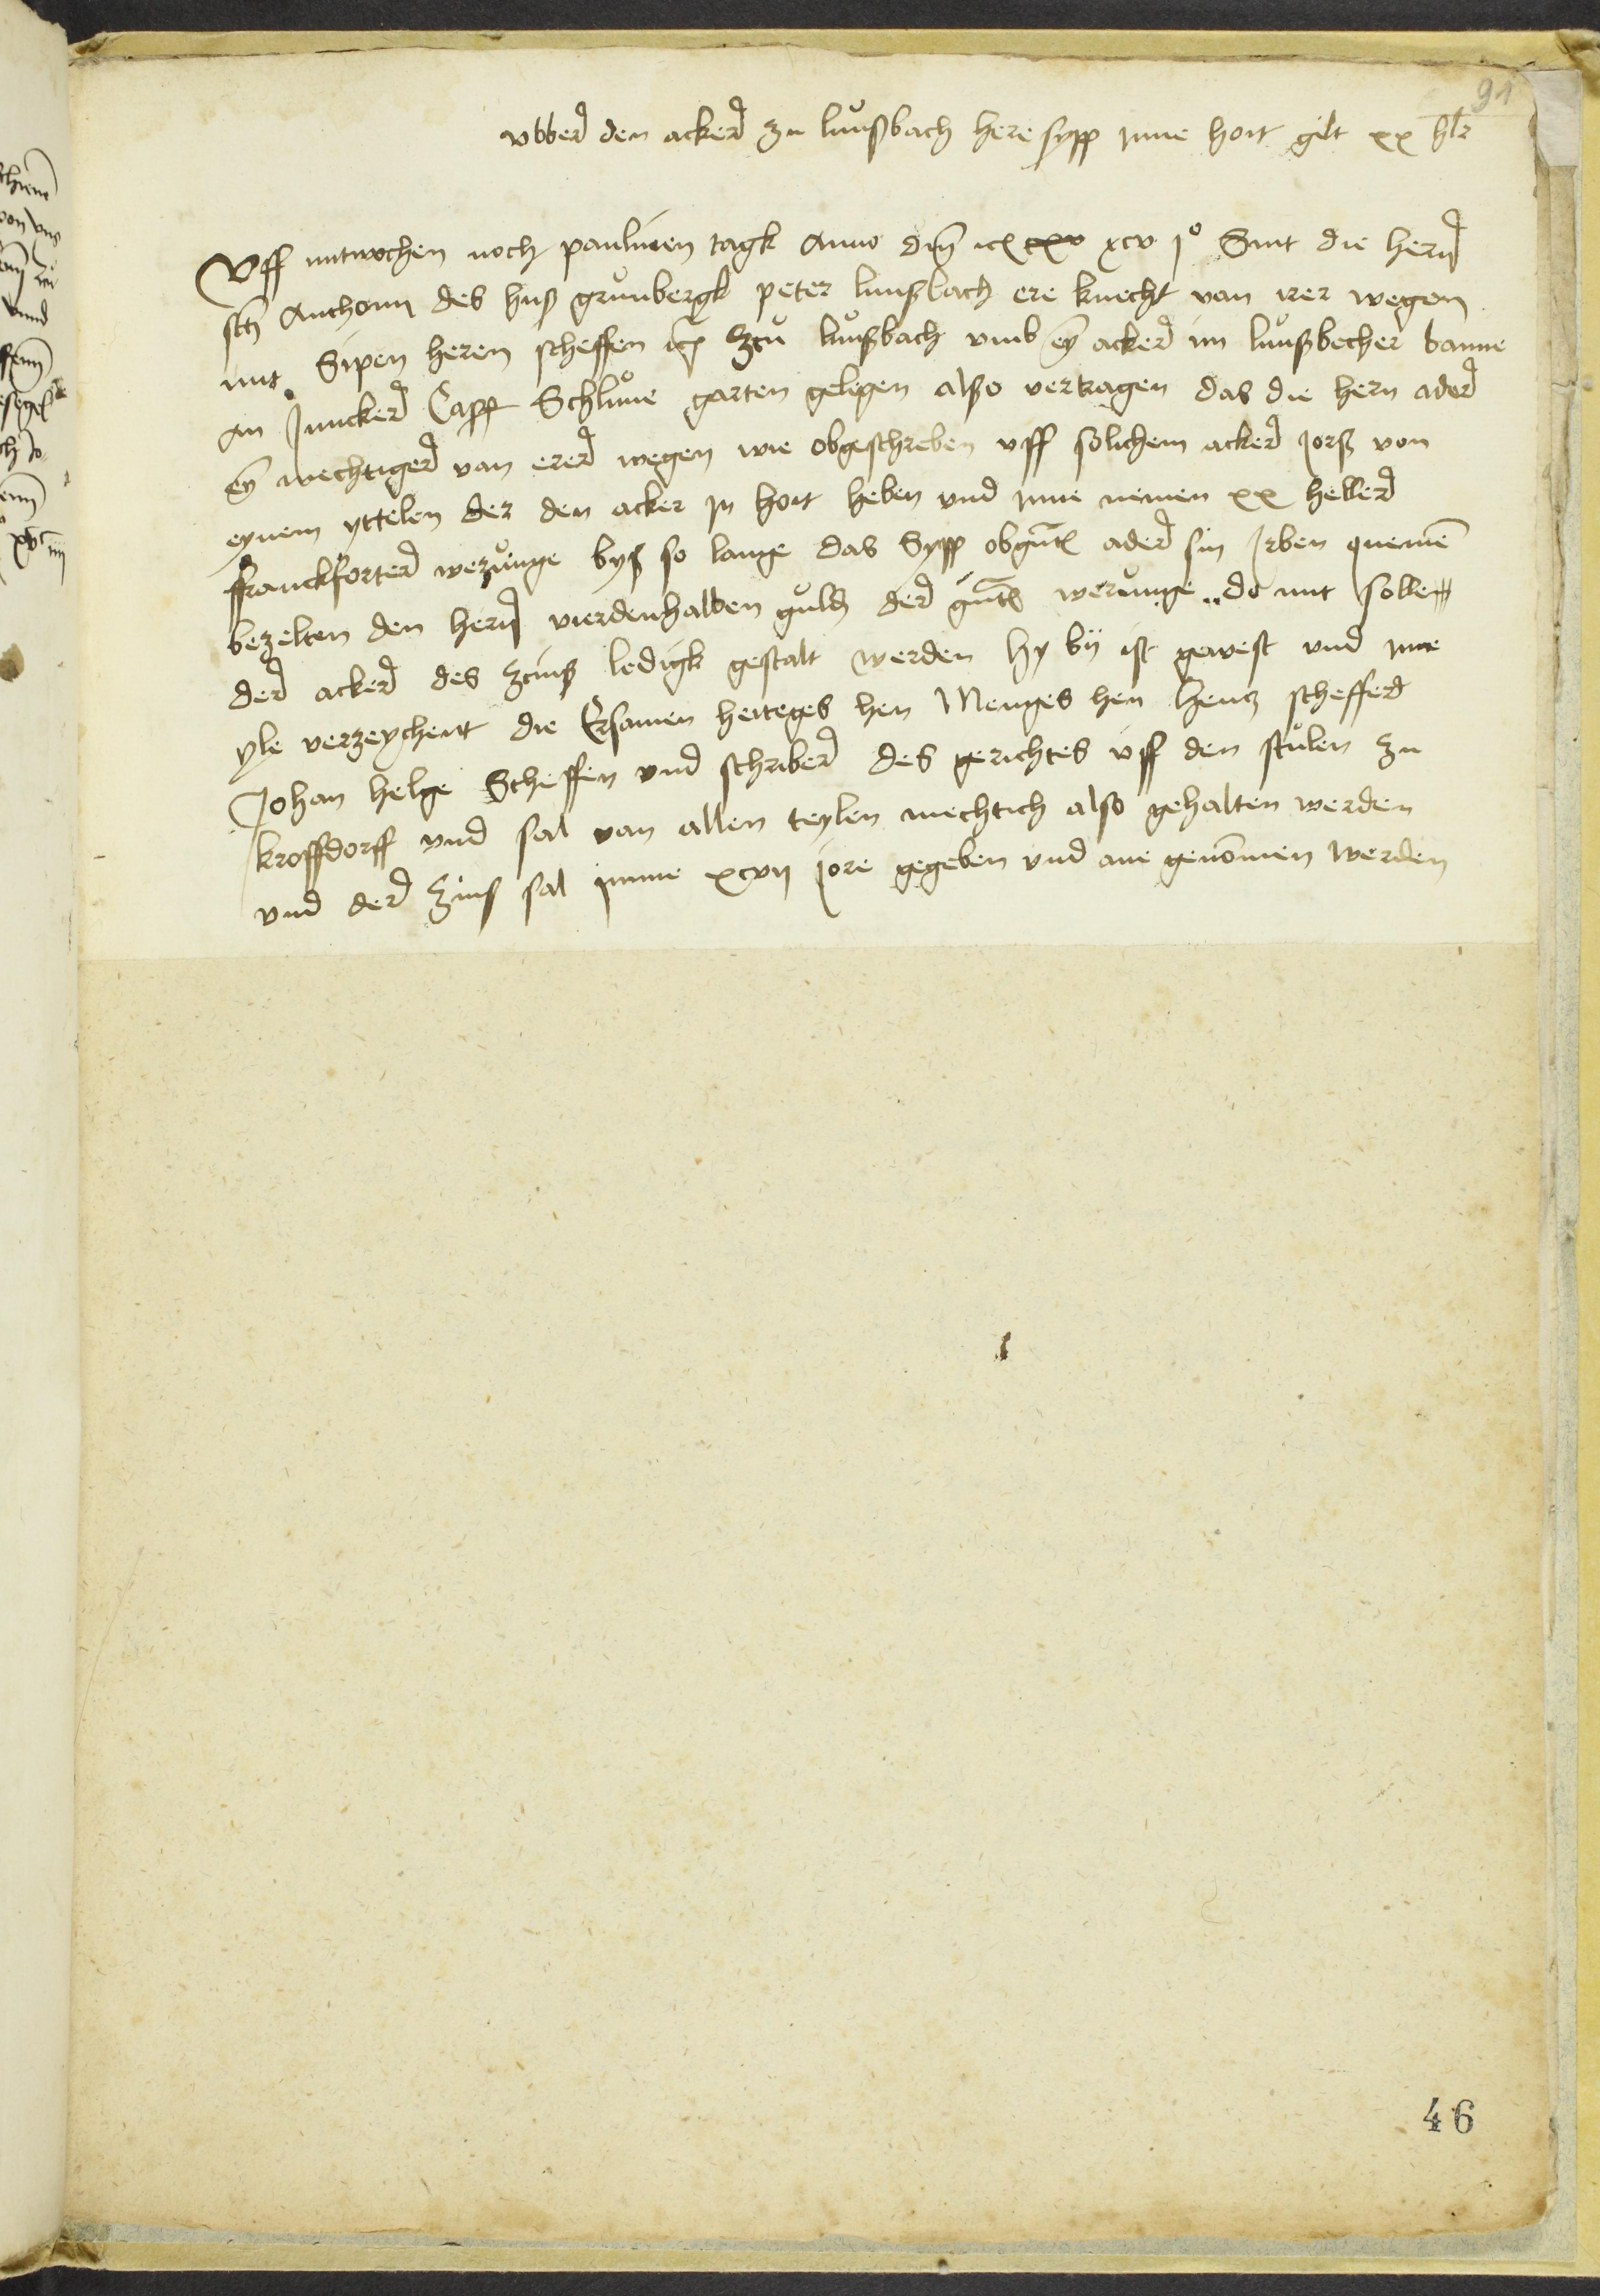 91
vbber den acker zu lunßbach here sypp inne hoit gilt xx hlr
Vff mitwochen noch paulinen tagk Anno dnj xcv jo Sint die hern
sct Anthonij des huß grunbergk peter lunßbach ere knecht van irer wegen
mit Sipen heren scheffen zcu lunßbach vmb ey acker im lunßbecher banne
an Juncker Capp Schlune garten gelegen also vertragen das die hern ader
ey mechtiger van erer wegen wie obgeschreben vff solichem acker jorß von
eynem yttelen der den acker in hoit heben vnd inne nemen xx heller
ffranckforter werunge byß so lange das Sypp obgnt ader sin Jrben quemen
bezelten den hern vierdenhalben guld der gnt werunge do mit sollen
der acker des zcinß ledigk gestalt werden hy bij ist gewest vnd inne
yle verzeychent die Ersamen henteges hen Menges hen henz scheffer
Johan helge Scheffen vnd schriber des gerichtes vff den stulen zu
kroffdorff vnd sal van allen teylen mechtich also gehalten werden
vnd der zins sal imme xcvij jore gegeben vnd ane genommen werden
46